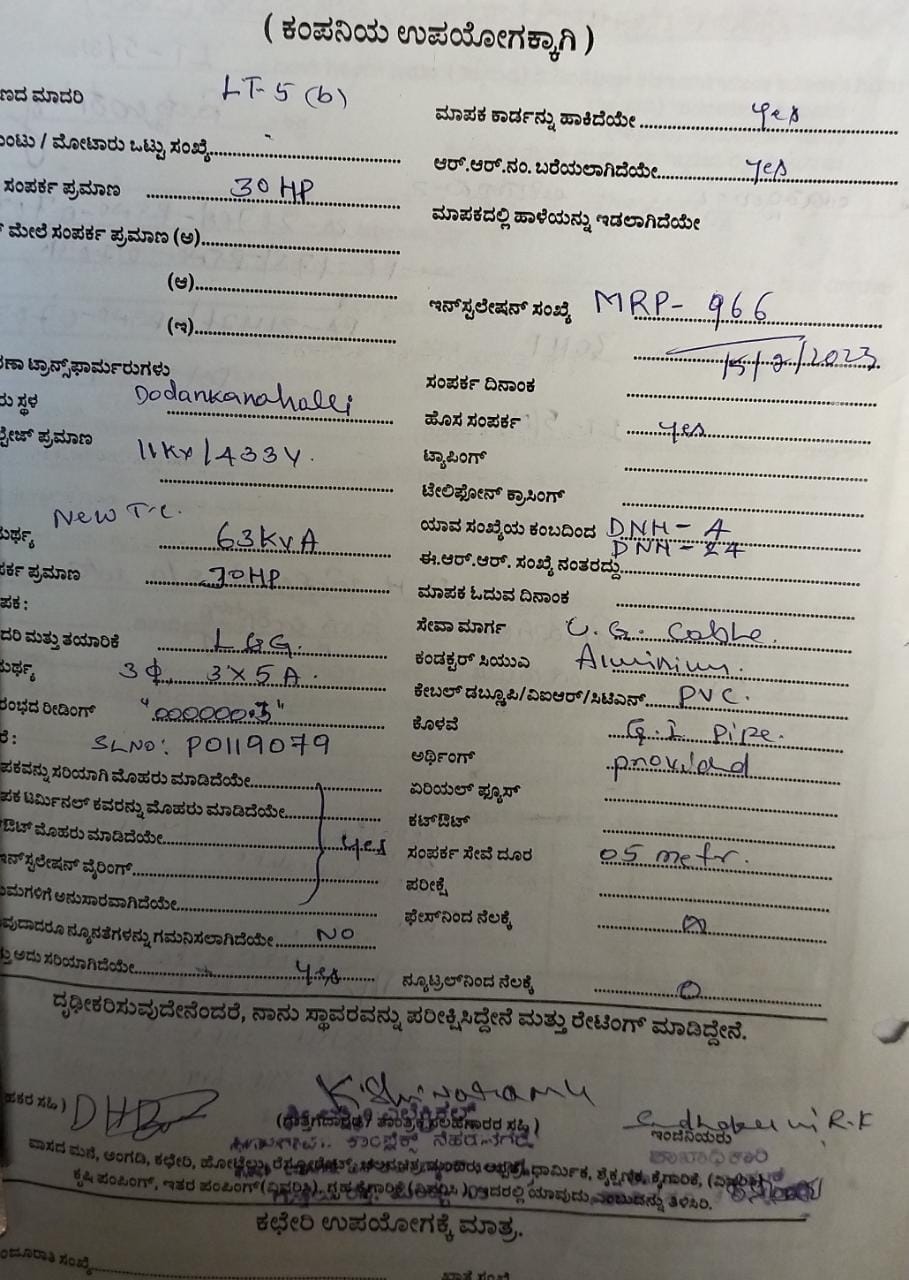 ( ಕಂಪನಿಯ ಉಪಯೋಗಕ್ಕಾಗಿ )
ಣದ ಮಾದರಿ LT-5 (b)
ಂಟು / ಮೋಟಾರು ಒಟ್ಟು ಸಂಖ್ಯೆ
ಸಂಪರ್ಕ ಪ್ರಮಾಣ 30 HP
ಮೇಲೆ ಸಂಪರ್ಕ ಪ್ರಮಾಣ (ಅ)
(ಆ)
(ಇ)
ಣಾ ಟ್ರಾನ್ಸ್‌ಫಾರ್ಮರುಗಳು
ರು ಸ್ಥಳ Dodankanahalli
ಲ್ಟೇಜ್ ಪ್ರಮಾಣ 11KV/433V.
New T.C.
ಮರ್ಥ್ಯ 63KVA
ಪರ್ಕ ಪ್ರಮಾಣ 30HP
ಪಕ :
ದರಿ ಮತ್ತು ತಯಾರಿಕೆ L&G.
ಮರ್ಥ್ಯ 3Φ, 3X5A.
ರಂಭದ ರೀಡಿಂಗ್ "000000.3"
ರೆ : SLNO: P0119079
ಪಕವನ್ನು ಸರಿಯಾಗಿ ಮೊಹರು ಮಾಡಿದೆಯೇ
ಪಕ ಟರ್ಮಿನಲ್ ಕವರನ್ನು ಮೊಹರು ಮಾಡಿದೆಯೇ
ಔಟ್ ಮೊಹರು ಮಾಡಿದೆಯೇ yes
ಇನ್‌ಸ್ಟಲೇಷನ್ ವೈರಿಂಗ್
ಯಮಗಳಿಗೆ ಅನುಸಾರವಾಗಿದೆಯೇ
ವುದಾದರೂ ನ್ಯೂನತೆಗಳನ್ನು ಗಮನಿಸಲಾಗಿದೆಯೇ NO
ತ್ತು ಅದು ಸರಿಯಾಗಿದೆಯೇ yes
ಮಾಪಕ ಕಾರ್ಡನ್ನು ಹಾಕಿದೆಯೇ yes
ಆರ್.ಆರ್.ನಂ. ಬರೆಯಲಾಗಿದೆಯೇ yes
ಮಾಪಕದಲ್ಲಿ ಹಾಳೆಯನ್ನು ಇಡಲಾಗಿದೆಯೇ
ಇನ್‌ಸ್ಟಲೇಷನ್ ಸಂಖ್ಯೆ MRP- 966
15/2/2023
ಸಂಪರ್ಕ ದಿನಾಂಕ
ಹೊಸ ಸಂಪರ್ಕ yes
ಟ್ಯಾಪಿಂಗ್
ಟೇಲಿಫೋನ್ ಕ್ರಾಸಿಂಗ್
ಯಾವ ಸಂಖ್ಯೆಯ ಕಂಬದಿಂದ DNH-4
ಈ.ಆರ್.ಆರ್. ಸಂಖ್ಯೆ ನಂತರದ್ದು
ಮಾಪಕ ಓದುವ ದಿನಾಂಕ
ಸೇವಾ ಮಾರ್ಗ U.G. Cable.
ಕಂಡಕ್ಟರ್ ಸಿಯುಎ Aluminium.
ಕೇಬಲ್ ಡಬ್ಲ್ಯೂಪಿ/ವಿಐಆರ್/ಸಿಟಿಎಸ್ PVC.
ಕೊಳವೆ G.I Pipe.
ಅರ್ಥಿಂಗ್ provided
ಏರಿಯಲ್ ಫ್ಯೂಸ್
ಕಟ್‌ಔಟ್
ಸಂಪರ್ಕ ಸೇವೆ ದೂರ 05 metr.
ಪರೀಕ್ಷೆ
ಫೇಸ್‌ನಿಂದ ನೆಲಕ್ಕೆ 0
ನ್ಯೂಟ್ರಲ್‌ನಿಂದ ನೆಲಕ್ಕೆ 0
ದೃಢೀಕರಿಸುವುದೇನೆಂದರೆ, ನಾನು ಸ್ಥಾವರವನ್ನು ಪರೀಕ್ಷಿಸಿದ್ದೇನೆ ಮತ್ತು ರೇಟಿಂಗ್ ಮಾಡಿದ್ದೇನೆ.
ಹಕರ ಸಹಿ )
ಸಹಿ )
ಇಂಜಿನಿಯರು
ಶಾಖಾಧಿಕಾರಿ
ವಾಸದ ಮನೆ, ಅಂಗಡಿ, ಕಛೇರಿ, ಹೋಟೆಲ್ಲು, ಧಾರ್ಮಿಕ, ಶೈಕ್ಷಣಿಕ, ಕೈಗಾರಿಕೆ,
ಕೃಷಿ ಪಂಪಿಂಗ್, ಇತರ ಪಂಪಿಂಗ್ (ವಿವರಿಸಿ), ಗೃಹ ಕೈಗಾರಿಕೆ (ವಿವರಿಸಿ) ಇದರಲ್ಲಿ ಯಾವುದು ಎಂಬುದನ್ನು ತಿಳಿಸಿರಿ.
ಕಛೇರಿ ಉಪಯೋಗಕ್ಕೆ ಮಾತ್ರ.
ಂಜೂರಾತಿ ಸಂಖ್ಯೆ